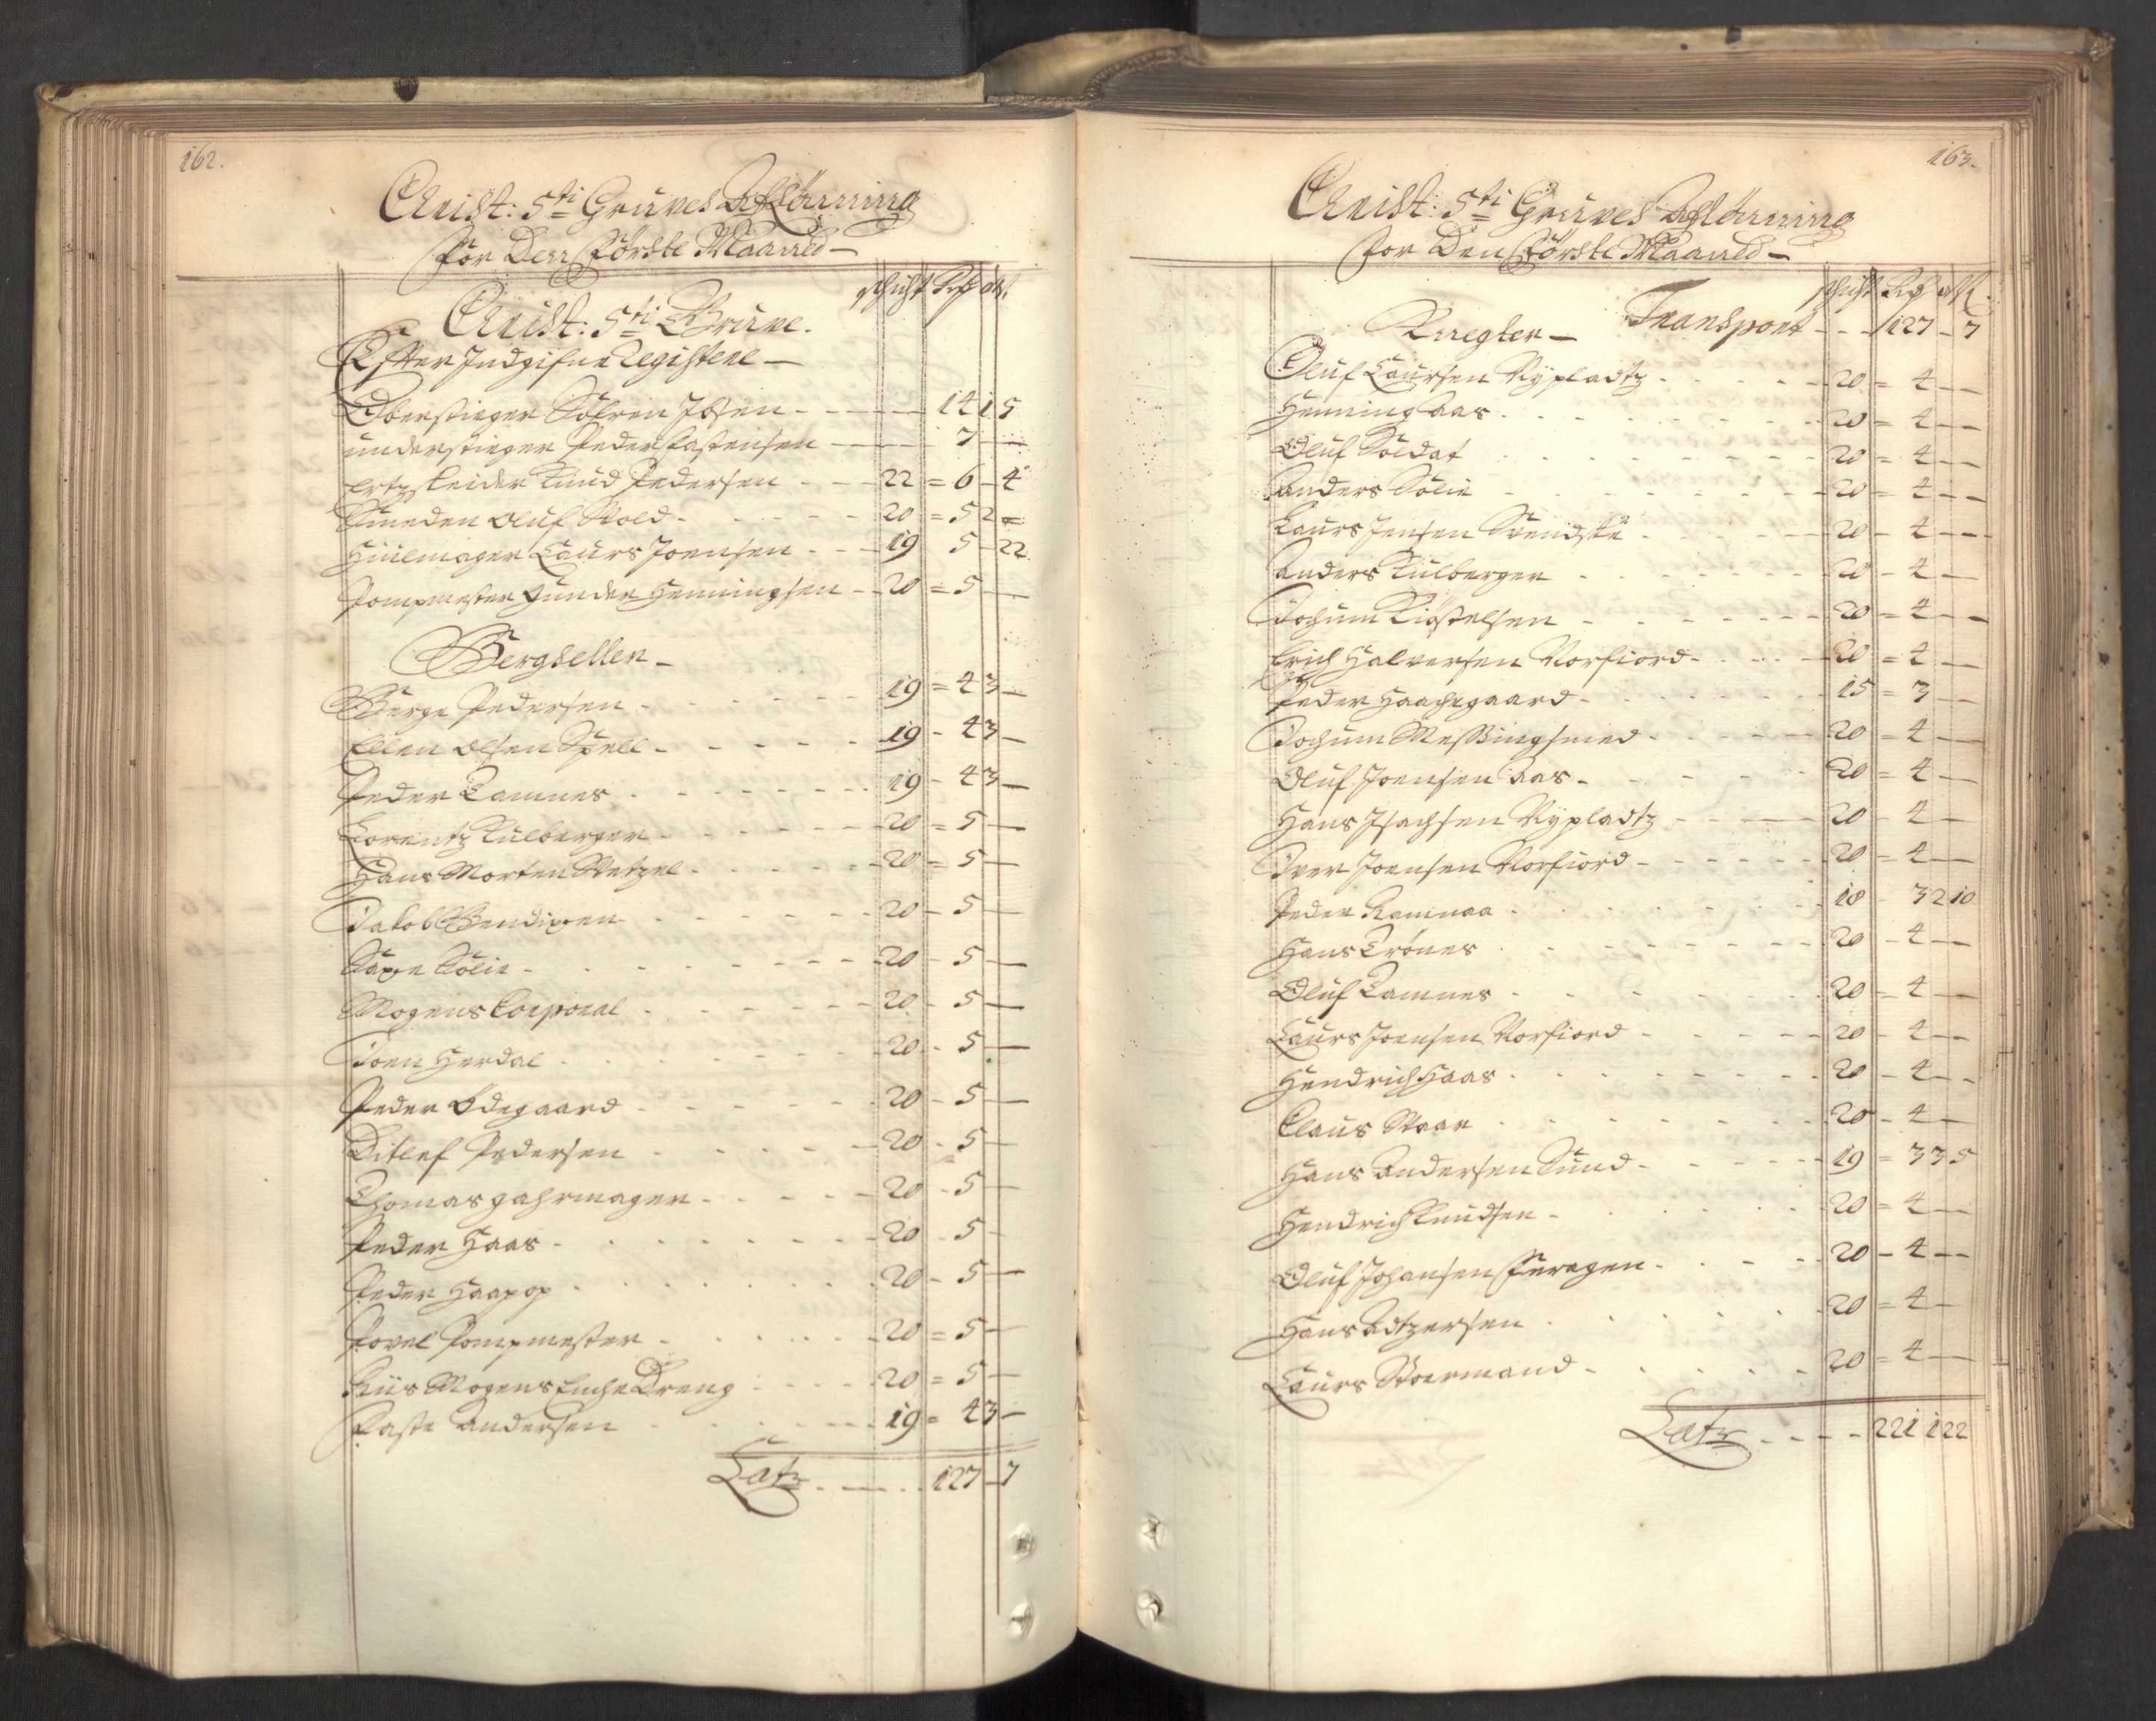 162.
Christ: 5ti Gruves Aflønning
for Den Første Maaned
schicht Rd ort
Christ: 5ti Gruve.
Efter Indgifne Registere
Oberstieger Søfren Ibsen - - - 14 1 5
understieger Peder Pastensen - - 7 -
Ertzskeider Knud Pedersen - - 22 = 6 - 4
Smeden Oluf Stold - - 20 = 5 2 =
Hiulmager Laurs Joensen - - 19 5 - 22
Pompmester Gunder Henningsen - 20 = 5 -
Bergsellen
Børge Pedersen - - 19 = 4 3 -
Ellen Olsen Spell - - 19 - 4 3 -
Peder Tamnes - - 19 - 4 3 -
Lorentz Kulberger - - 20 = 5 -
Hans Morten Wetzel - - 20 = 5 -
Jakob Bendixen - - 20 - 5 -
Solie - - 20 - 5 -
Mogens Corporal - - 20 - 5 -
Joen Herdal - - 20 - 5 -
Peder Ødegaard - - 20 - 5 -
Ditlef Pedersen - - 20 - 5 -
Thomas Gahrmager - - 20 - 5 -
Peder Haas - - 20 - 5 -
Peder - - 20 - 5 -
Povel Pompmester - - 20 = 5 -
Mogens Enche Dreng - - 20 = 5 -
Paste Andersen - - 19 = 4 3 -
Latz - - 127 - 7
163.
Christ: 5ti Gruves Aflønning
for Den Første Maaned
schicht Rd ort
Knegter - Transport - - 127 - 7
Oluf Laursen Nypladtz - - 20 = 4 -
Henning Aas - - 20 = 4 -
Oluf Soldat - - 20 = 4 -
Anders Solie - - 20 = 4 -
Laurs Jensen Svendske - - 20 - 4 -
Anders Kulberger - - 20 - 4 -
Jochum Kiøstelsen - - 20 = 4 -
Erich Halversen Norfiord - - 20 = 4 -
Peder Haachegaard - - 15 = 3 -
Jochum Messingsmed - - 20 = 4 -
Oluf Joensen Aas - - 20 = 4 -
Hans Isachsen Nypladtz - - 20 - 4 -
Iver Joensen Norfiord - - 20 = 4 -
Peder Ramnaa - - 18 - 3 2 10
Hans Trønes - - 20 - 4 -
Oluf Tamnes - - 20 = 4 -
Laurs Joensen Norfiord - - 20 - 4 -
Hendrich Haas - - 20 - 4 -
Claus Staar - - 20 - 4 -
Hans Andersen Sund - - 19 = 3 3 5
Hendrich Knudsen - - 20 = 4 -
Oluf Johansen Feragen - - 20 - 4 -
Hans Adtzersen - - 20 = 4 -
Laurs Stoermand - - 20 = 4 -
Latz - - 221 1 22